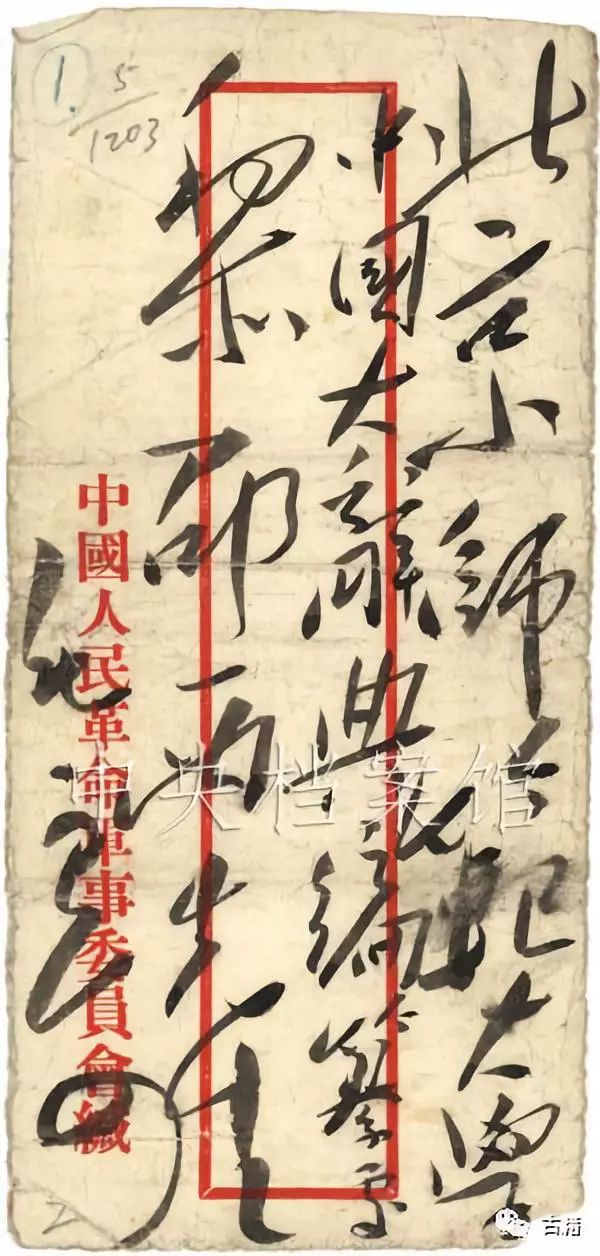 1.
5/1203
北京師范大學
中國大辭典編纂處
黎邵西先生
中國人民革命軍事委員會緘
中央档案馆
古街